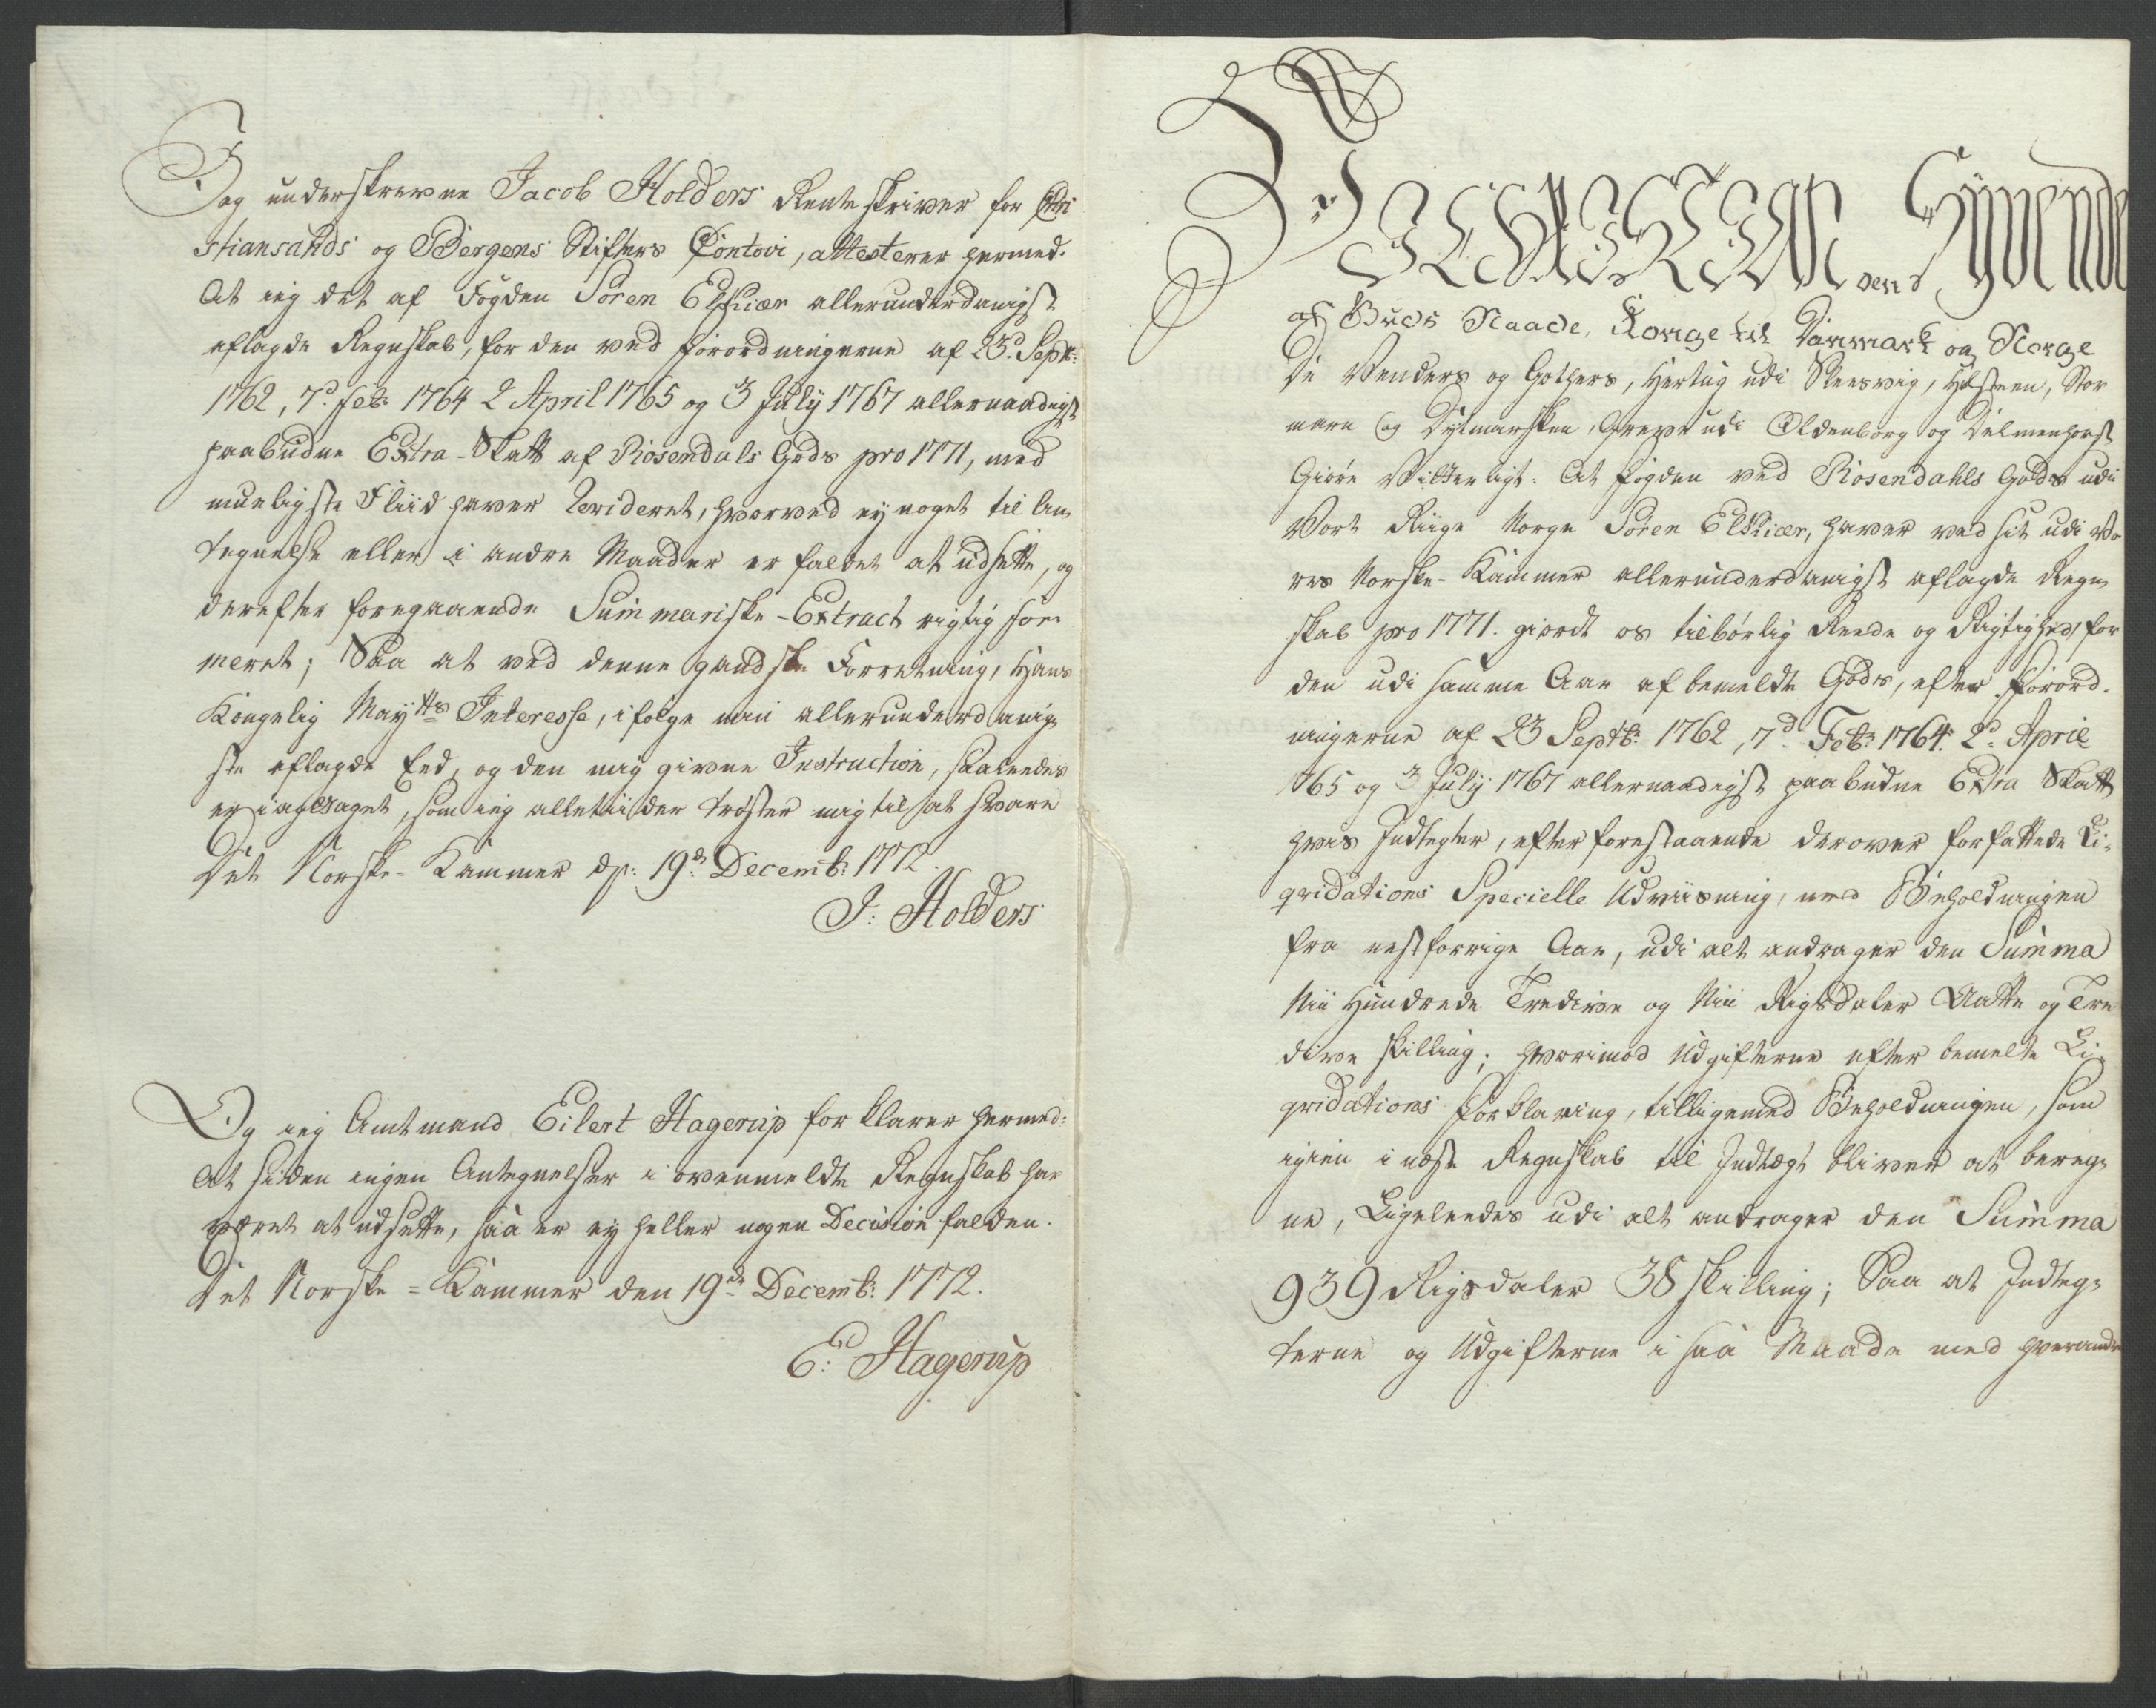 Jeg underskrevne Jacob Holders Renteskriver for Chri
stiansands og Bergens Stifters Contoir, attesterer hermed.
At ieg det af Fogden Sören Elskiær allerunderdanigst
aflagde Regnskab, for den ved Forordningerne af 23d Septr:
1762, 7d: Feb: 1764 2 April 1765 og 3 July 1767 allernaadigst
paabudne Extra-Skatt af Rosendals Gods pro 1771, med
mueligste Fliid haver Revideret, hvorved ey noget til An
tegnelse eller i andre Maader er faldet at udsette, og
derefter foregaaende Summariske-Extract rigtig for
meret; Saa at ved denne gandske Forretning, Hans
Kongelig Maytts Interesse, ifølge min allerunderdanig
ste aflagde Eed, og den mig givne Instruction, saaledes
er iagttaget, som ieg alletiider trøster mig til at svare
Det Norske-Kammer d: 19d Decemb: 1772.
J: Holders
Og ieg Amtmand Eilert Hagerup forklarer hermed:
At siden ingen Antegnelser i ovenmeldte Regnskab har
været at udsette, saa er ey heller nogen Decision falden.
Det Norske=Kammer den 19de Decemb: 1772.
E: Hagerup
CHRISTIAN den Syvende
af Guds Naade, Konge til Danmark og Norge
De Venders og Gothers, Hertug udi Slesvig, Holsteen, Stor
marn og Dytmarsken, Greve udi Oldenborg og Delmenhorst
Giøre Vitterligt: At Fogden ved Rosendahls Gods udi
Vort Riige Norge Sören Elskiær, haver ved sit udi Vo
res Norske-Kammer allerunderdanigst aflagde Regn
skab pro 1771. giordt os tilbørlig Reede og Rigtighed, for
den udi samme Aar af bemeldte Gods, efter Forord.
ningerne af 23 Septb: 1762, 7d: Feb: 1764. 2d: April
1765 og 3 July 1767 allernaadigst paabudne Extra Skatt
hvis Indtegter, efter forestaaende derover forfattede Li-
qvidations Specielle Udviisning, med Beholdningen
fra nestforrige Aar, udi alt andrager den Summa
Nii Hundrede Tredive og Nii Rigsdaler Aatte og Tre
dive skilling; hvorimod Udgifterne efter bemelte Li-
qvidations Forklaring, tilligemed Beholdningen, som
igien i næste Regnskab til Indtægt bliver at bereg-
ne, Ligeleedes udi alt andrager den Summa
939 Rigsdaler 38 skilling; Saa at Indteg-
terne og Udgifterne i saa Maade med hverandre